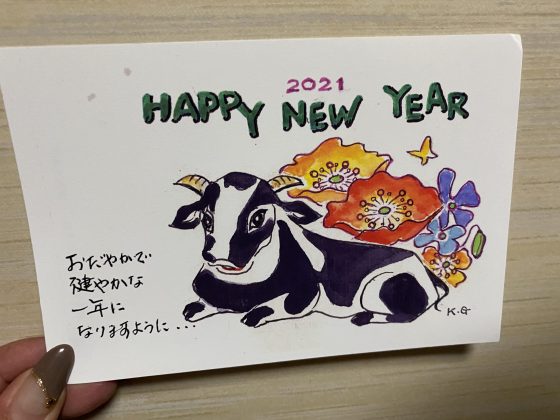 2021
HAPPY NEW YEAR
おだやかで
健やかな
一年に
なりますように・・・
K.G